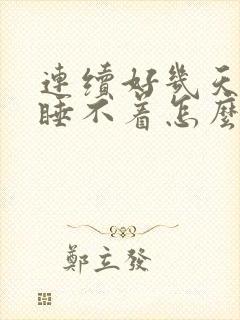 連續好幾天
睡不着怎麼
鄭立發